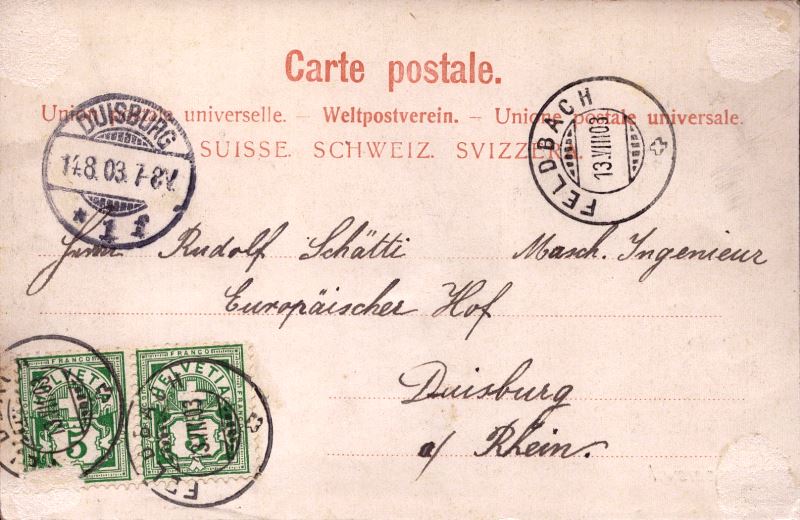 Carte postale.
Union postale universelle. – Weltpostverein. – Unione postale universale.
SUISSE. SCHWEIZ. SVIZZERA.
DUISBURG
14.8.03. 7-8V.
* 1 f
FELDBACH
13.VIII.03
Herrn Rudolf Schätti Masch. Ingenieur
Europäischer Hof
Duisburg
a/ Rhein.
FRANCO
HELVETIA
5
FRANCO
HELVETIA
FELDBACH
13.VIII.03